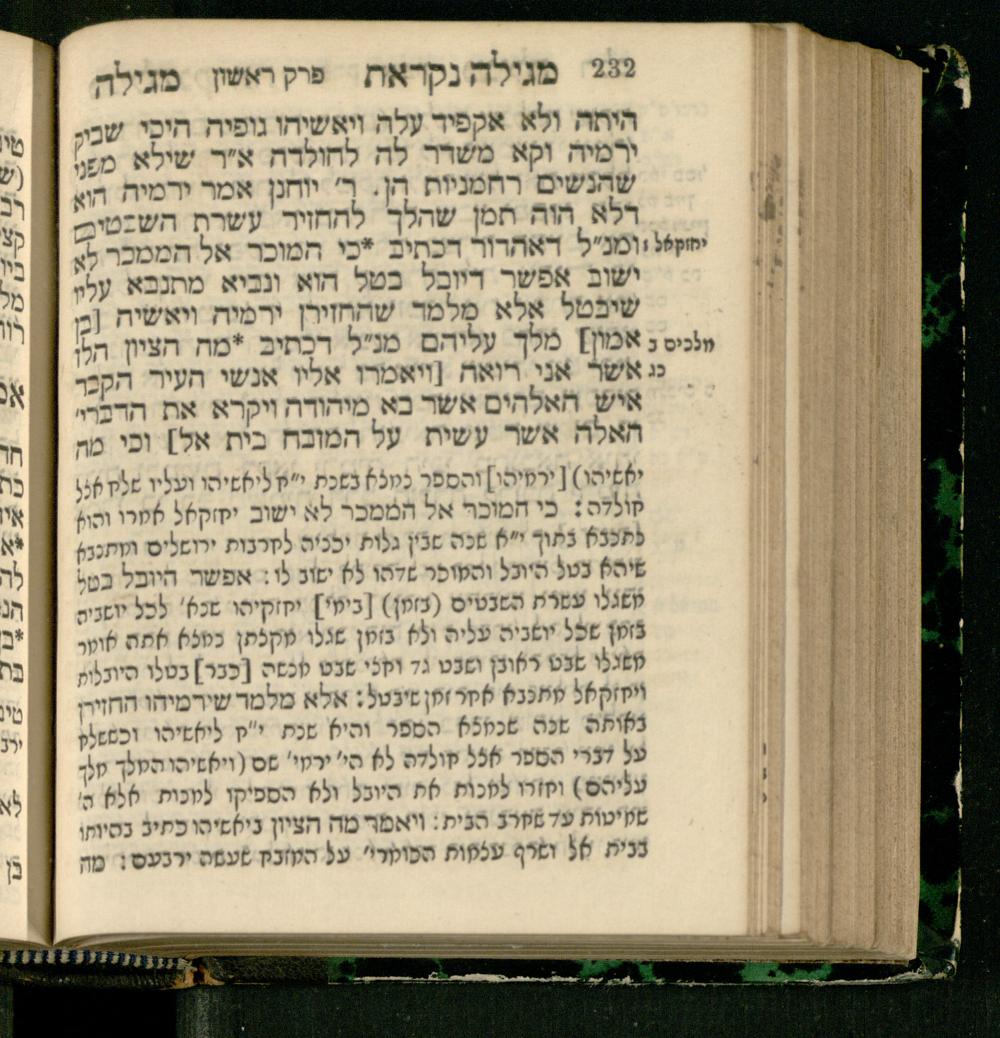 232 מגילה נקראת פרק ראשון מגילה
היתה ולא אקפיד עלה ויאשיהו גופיה היכי שביק
ירמיה וקא משדר לה לחולדה א״ר שילא מפני
שהנשים רחמניות הן. ר׳ יוחנן אמר ירמיה הוא
דלא הוה תמן שהלך להחזיר עשרת השבטים
יחזקאל ז ומנ״ל דאהדור דכתיב *כי המוכר אל הממכר לא
ישוב אפשר דיובל בטל הוא ונביא מתנבא עליו
שיבטל אלא מלמד שהחזירן ירמיה ויאשיה [בן
מלכים ב אמון] מלך עליהם מנ״ל דכתיב *מה הציון הלז
כג אשר אני רואה [ויאמרו אליו אנשי העיר הקבר
איש האלהים אשר בא מיהודה ויקרא את הדברי׳
האלה אשר עשית על המזבח בית אל] וכי מה
יאשיהו) [ירמיהו] והספר נמצא בשנת י״ח ליאשיהו ועליו שלח אצל
חולדה: כי המוכר אל הממכר לא ישוב יחזקאל אמרו והוא
נתנבא בתוך י״א שנה שבין גלות יכניה לחרבות ירושלים ומתנבא
שיהא בטל היובל והמוכר שדהו לא ישוב לו: אפשר היובל בטל
משגלו עשרת השבטים (בזמן) [בימי] יחזקיהו שנא׳ לכל יושביה
בזמן שכל יושביה עליה ולא בזמן שגלו מקצתן נמצא אתה אומר
משגלו שבט ראובן ושבט גד וחצי שבט מנשה [כבר] בטלו היובלות
ויחזקאל מתנבא אחר זמן שיבטל: אלא מלמד שירמיהו החזירן
באותה שנה שנמצא הספר והיא שנת י״ח ליאשיהו וכששלח
על דברי הספר אצל חולדה לא הי׳ ירמי׳ שם (ויאשיהו המלך מלך
עליהם) וחזרו למנות את היובל ולא הספיקו למנות אלא ה׳
שמיטות עד שחרב הבית: ויאמר מה הציון ביאשיהו כתיב בהיותו
בבית אל ושרף עצמות הכומרי׳ על המזבח שעשה ירבעם: מה